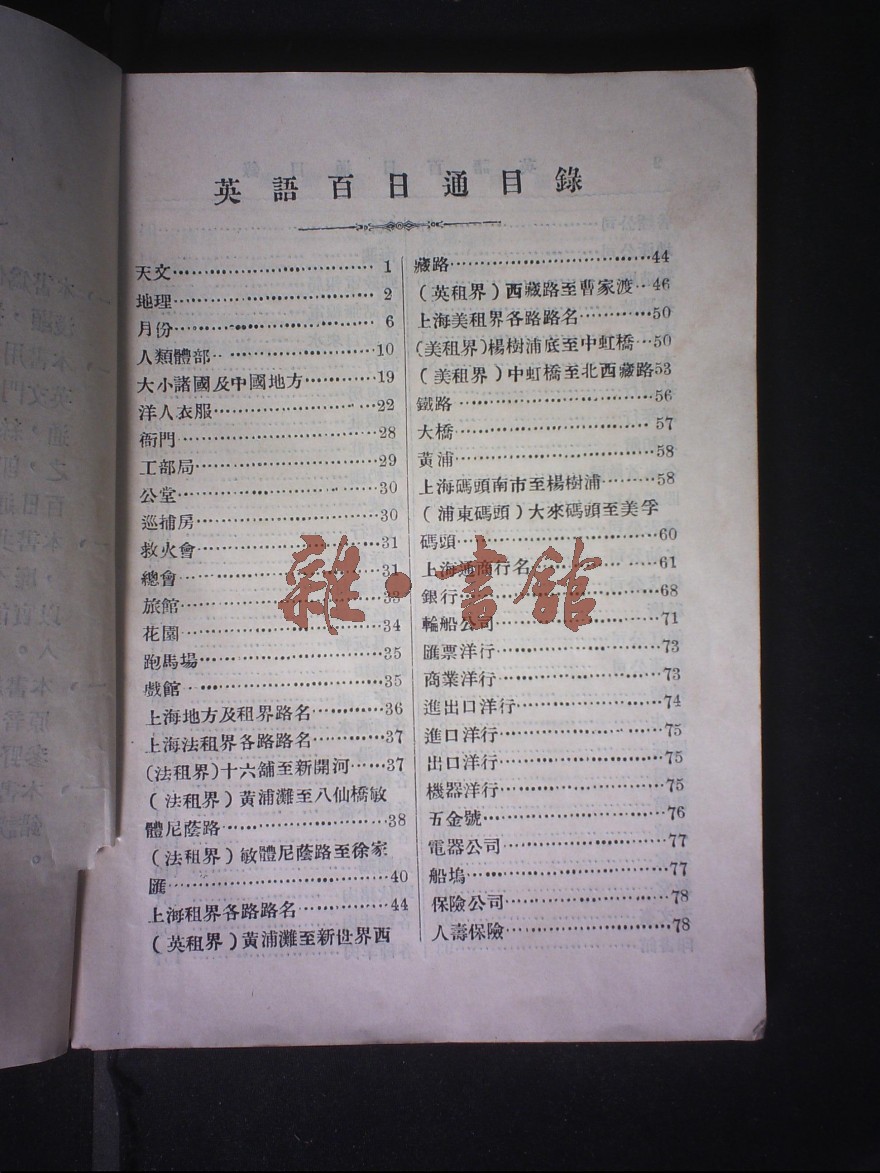 英語百日通目錄
天文………1
地理………2
月份………6
人類體部………10
大小諸國及中國地方………19
洋人衣服………22
衙門………28
工部局………29
公堂………30
巡捕房………30
救火會………31
總會………31
旅館………33
花園………34
跑馬場………35
戲館………35
上海地方及租界路名………36
上海法租界各路路名………37
(法租界)十六舖至新開河……37
(法租界)黃浦灘至八仙橋敏
體尼蔭路………38
(法租界)敏體尼蔭路至徐家
匯………40
上海租界各路路名………44
(英租界)黃浦灘至新世界西
藏路………44
(英租界)西藏路至曹家渡…46
上海美租界各路路名………50
(美租界)楊樹浦底至中虹橋…50
(美租界)中虹橋至北西藏路53
鐵路………56
大橋………57
黃浦………58
上海碼頭南市至楊樹浦……58
(浦東碼頭)大來碼頭至美孚
碼頭………60
上海通商行名………61
銀行………68
輪船公司………71
匯票洋行………73
商業洋行………73
進出口洋行………74
進口洋行………75
出口洋行………75
機器洋行………75
五金號………76
電器公司………77
船塢………77
保險公司………78
人壽保險………78
雜·書館